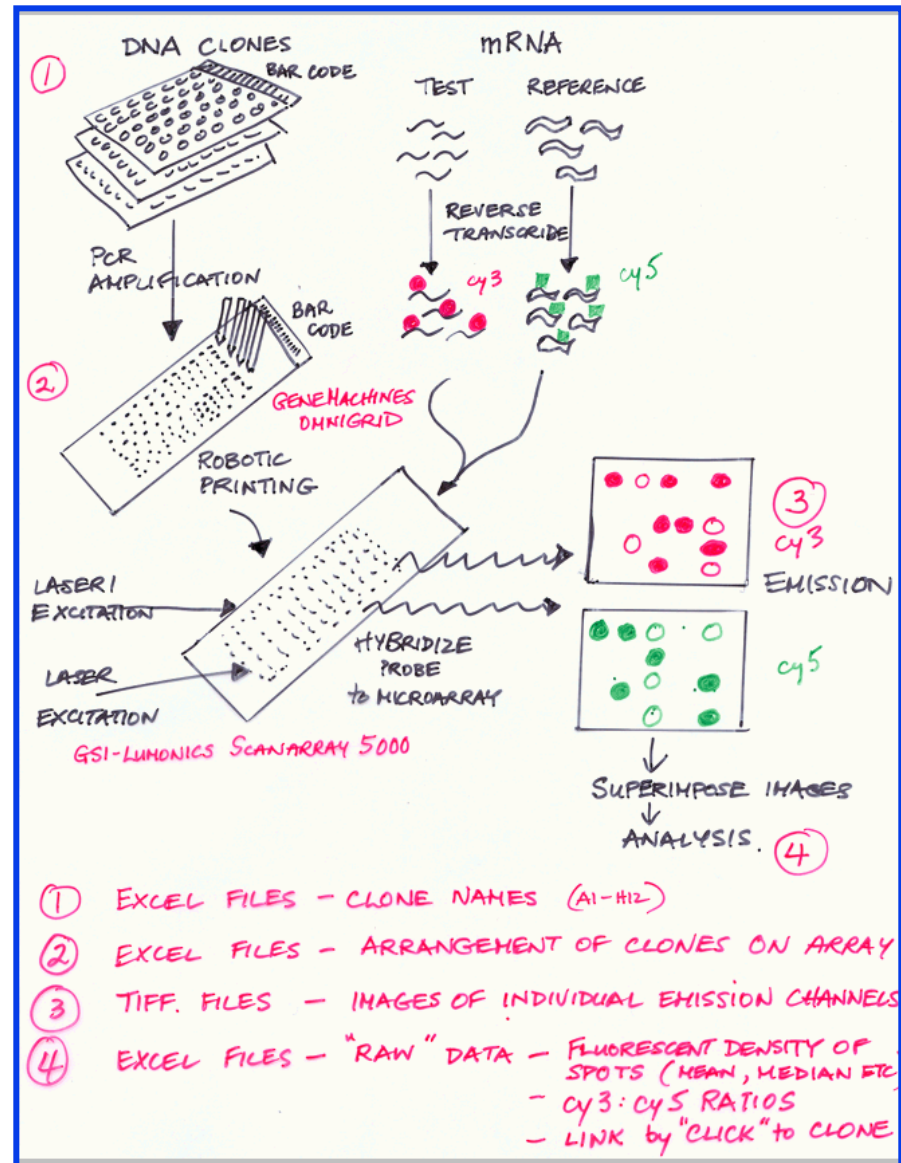 DNA CLONES
①
BAR CODE
mRNA
TEST REFERENCE
REVERSE
TRANSCRIDE
cy3
cy5
PCR
AMPLIFICATION
BAR
CODE
②
GENEMACHINES
OMNIGRID
ROBOTIC
PRINTING
③
cy3
EMISSION
cy5
LASER1
EXCITATION
LASER
EXCITATION
HYBRIDIZE
PROBE
to MICROARRAY
GSI-LUMONICS SCANARRAY 5000
SUPERIMPOSE IMAGES
ANALYSIS.
④
① EXCEL FILES - CLONE NAMES (A1-H12)
② EXCEL FILES - ARRANGEMENT OF CLONES ON ARRAY
③ TIFF. FILES - IMAGES OF INDIVIDUAL EMISSION CHANNELS
④ EXCEL FILES - "RAW" DATA - FLUORESCENT DENSITY OF
SPOTS (MEAN, MEDIAN ETC
- cy3:cy5 RATIOS
- LINK by "CLICK" to CLONE